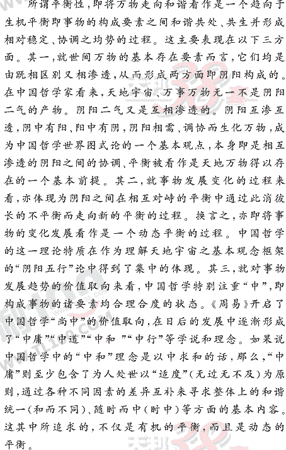 所谓平衡性，即将万物走向和谐看作是一个趋向于
生机平衡即事物的构成要素之间和谐共处、共生并形成
相对稳定、协调之均势的过程。这主要表现在以下三方
面。其一，就世间万物的基本存在要素而言，它们均是
由既相区别又相渗透，从而形成两方面即阴阳构成的。
在中国哲学家看来，天地宇宙、万事万物无一不是阴阳
二气的产物。阴阳二气又是互相渗透的。阴阳互渗互
透，阴中有阳、阳中有阴，阴阳相需，调协而生化万物，成
为中国哲学世界图式论的一个基本观点，本身即是相互
渗透的阴阳之间的协调、平衡被看作是天地万物得以存
在的一个基本前提。其二，就事物发展变化的过程来
看，亦体现为阴阳之间在相互对峙的平衡中通过此消彼
长的不平衡而走向新的平衡的过程。换言之，亦即将事
物的变化发展看作是一个动态平衡的过程。中国哲学
的这一理论特质在作为理解天地宇宙之基本观念框架
的“阴阳五行”论中得到了集中的体现。其三，就对事物
发展趋势的价值取向来看，中国哲学特别注重“中”，即
构成事物的诸要素均合理合度的状态。《周易》开启了
中国哲学“尚中”的价值取向，在日后的发展中逐渐形成
了“中庸”“中道”“中和”“中行”等学说和理念。如果说
中国哲学中的“中和”理念是以中求和的话，那么，“中
庸”则至少包含了为人处世以“适度”（无过无不及）为原
则，通过各种不同因素的差异互补来寻求整体上的和谐
统一（和而不同）、随时而中（时中）等方面的基本内容。
这其中所追求的，不仅是有机的平衡，而且是动态的
平衡。